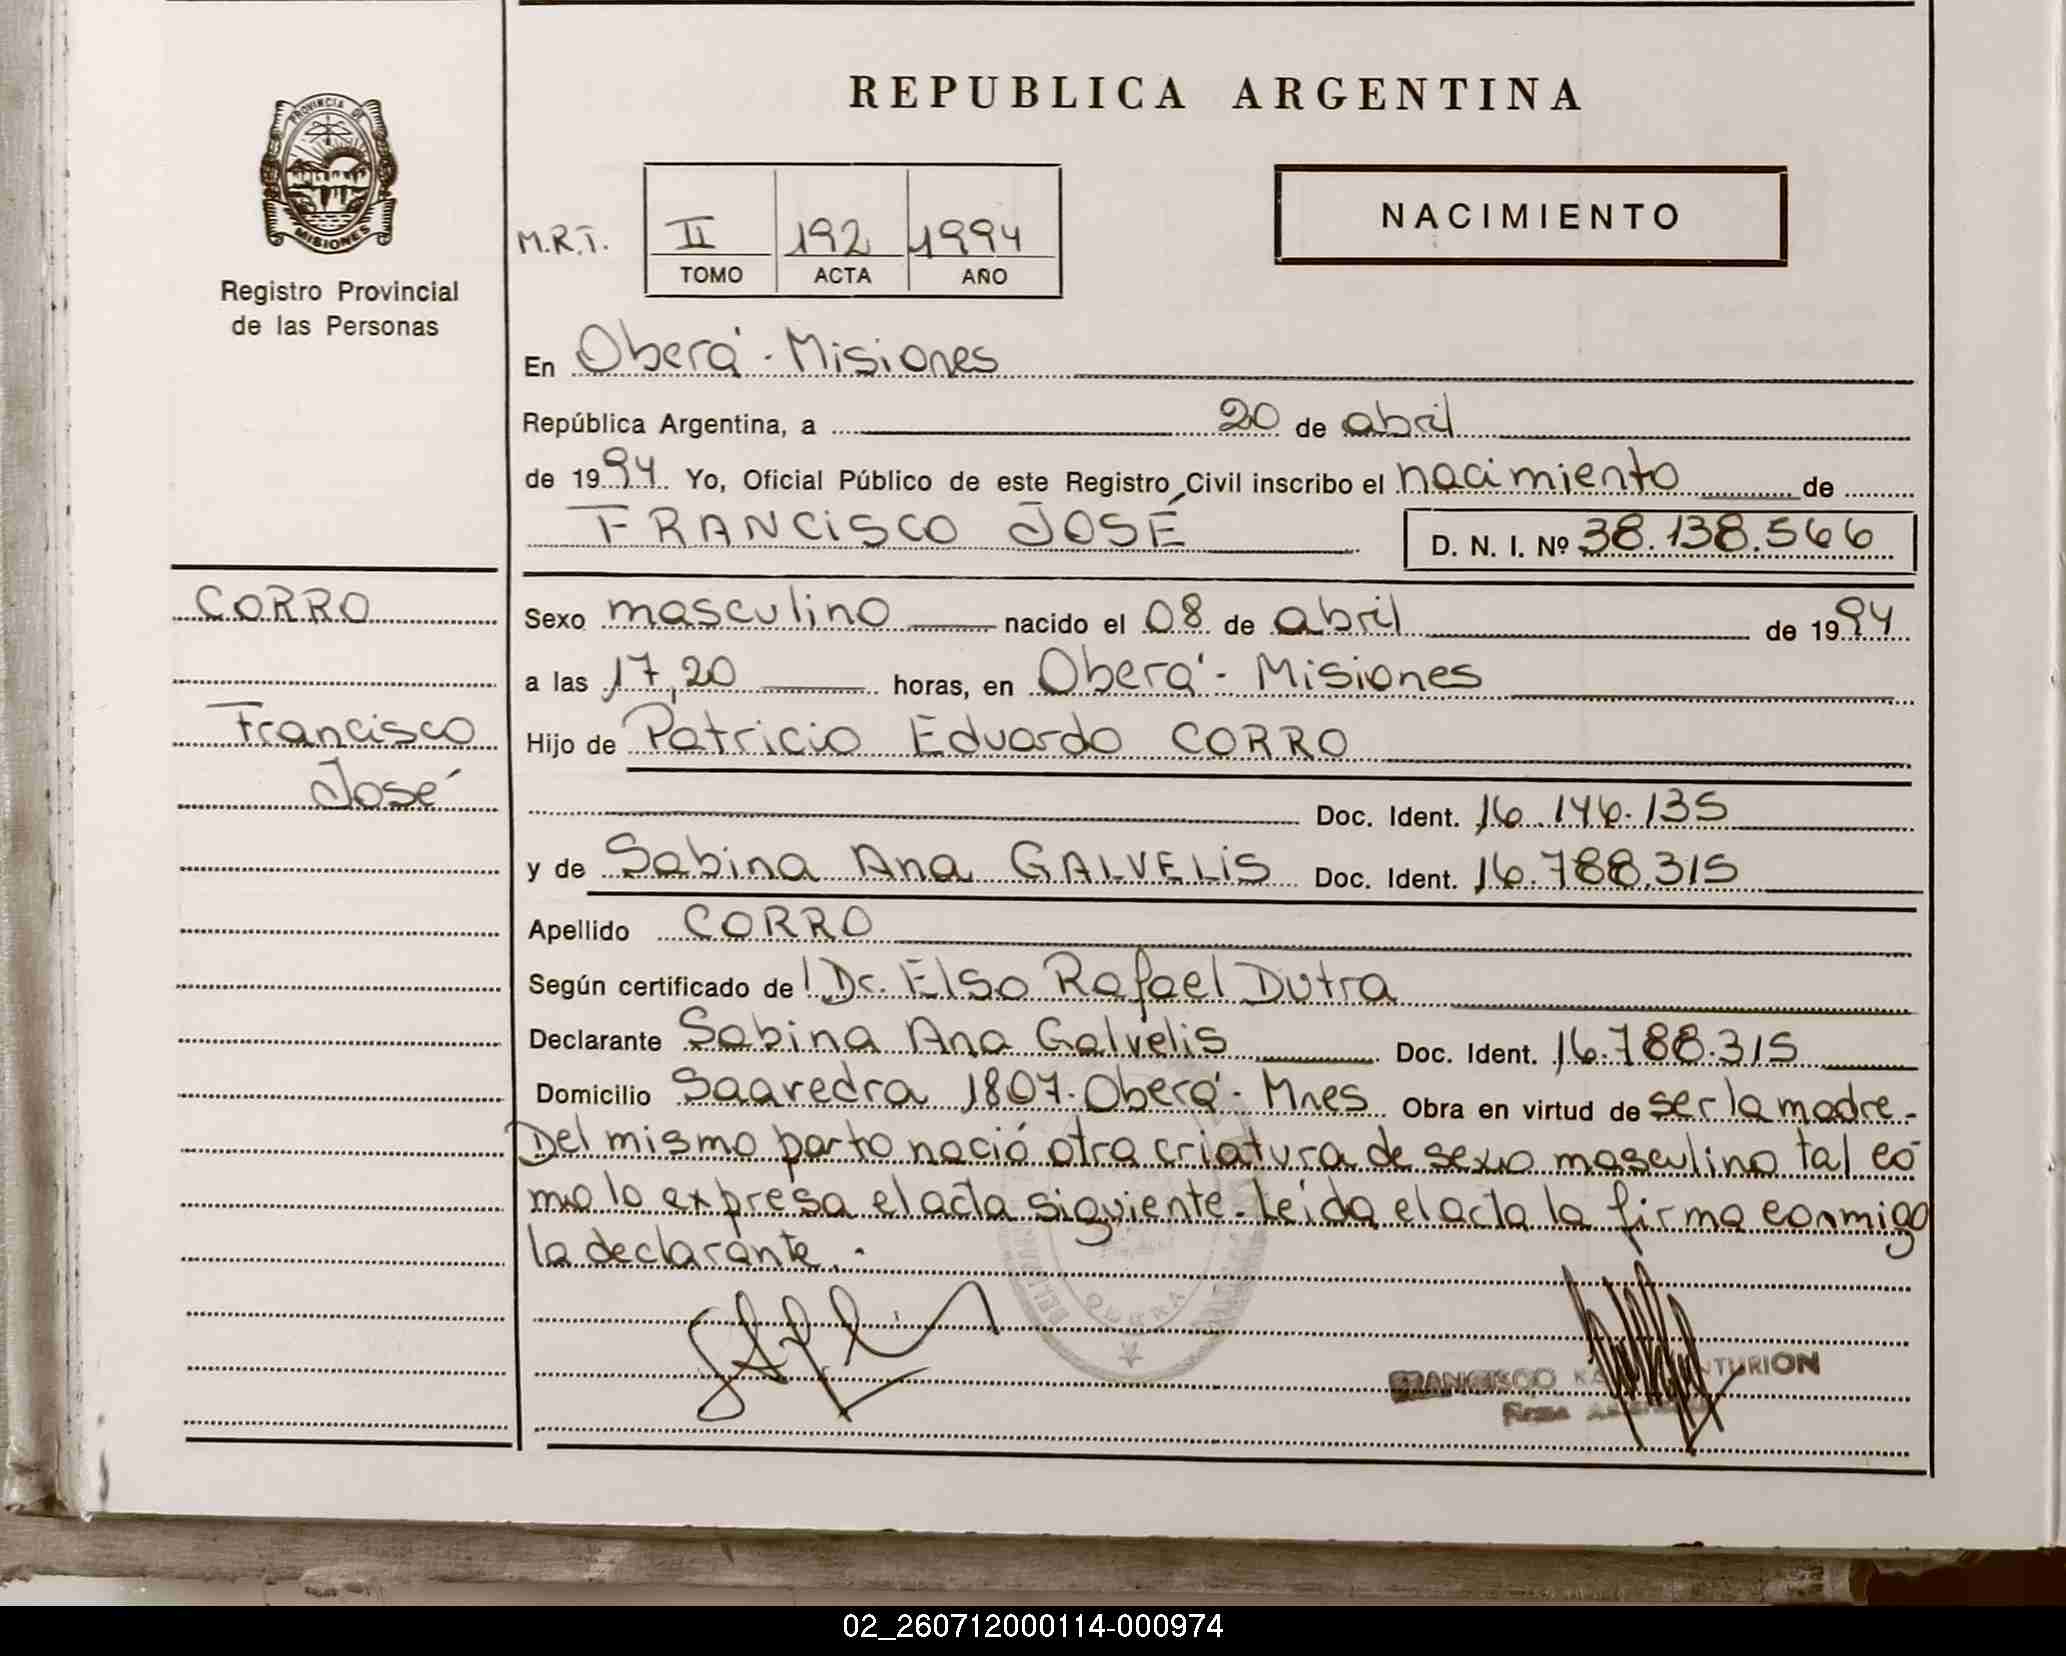 REPUBLICA ARGENTINA
PROVINCIA DE
MISIONES
Registro Provincial
de las Personas
M.R.T.
II 192 1994
TOMO ACTA AÑO
NACIMIENTO
En Oberá - Misiones
República Argentina, a 20 de abril
de 1994 Yo, Oficial Público de este Registro Civil inscribo el nacimiento de
FRANCISCO JOSÉ D. N. I. Nº 38.138.566
CORRO
Francisco
José
Sexo masculino nacido el 08 de abril de 1994
a las 17,20 horas, en Oberá - Misiones
Hijo de Patricio Eduardo CORRO
Doc. Ident. 16.146.135
y de Sabina Ana GALVELIS Doc. Ident. 16.788.315
Apellido CORRO
Según certificado del Dr. Elso Rafael Dutra
Declarante Sabina Ana Galvelis Doc. Ident. 16.788.315
Domicilio Saavedra 1807. Oberá - Mnes Obra en virtud de ser la madre.
Del mismo parto nació otra criatura de sexo masculino tal co
mo lo expresa el acta siguiente. Leída el acta la firma conmigo
la declarante.
OBERA
FRANCISCO TURION
Firma
02_260712000114-000974